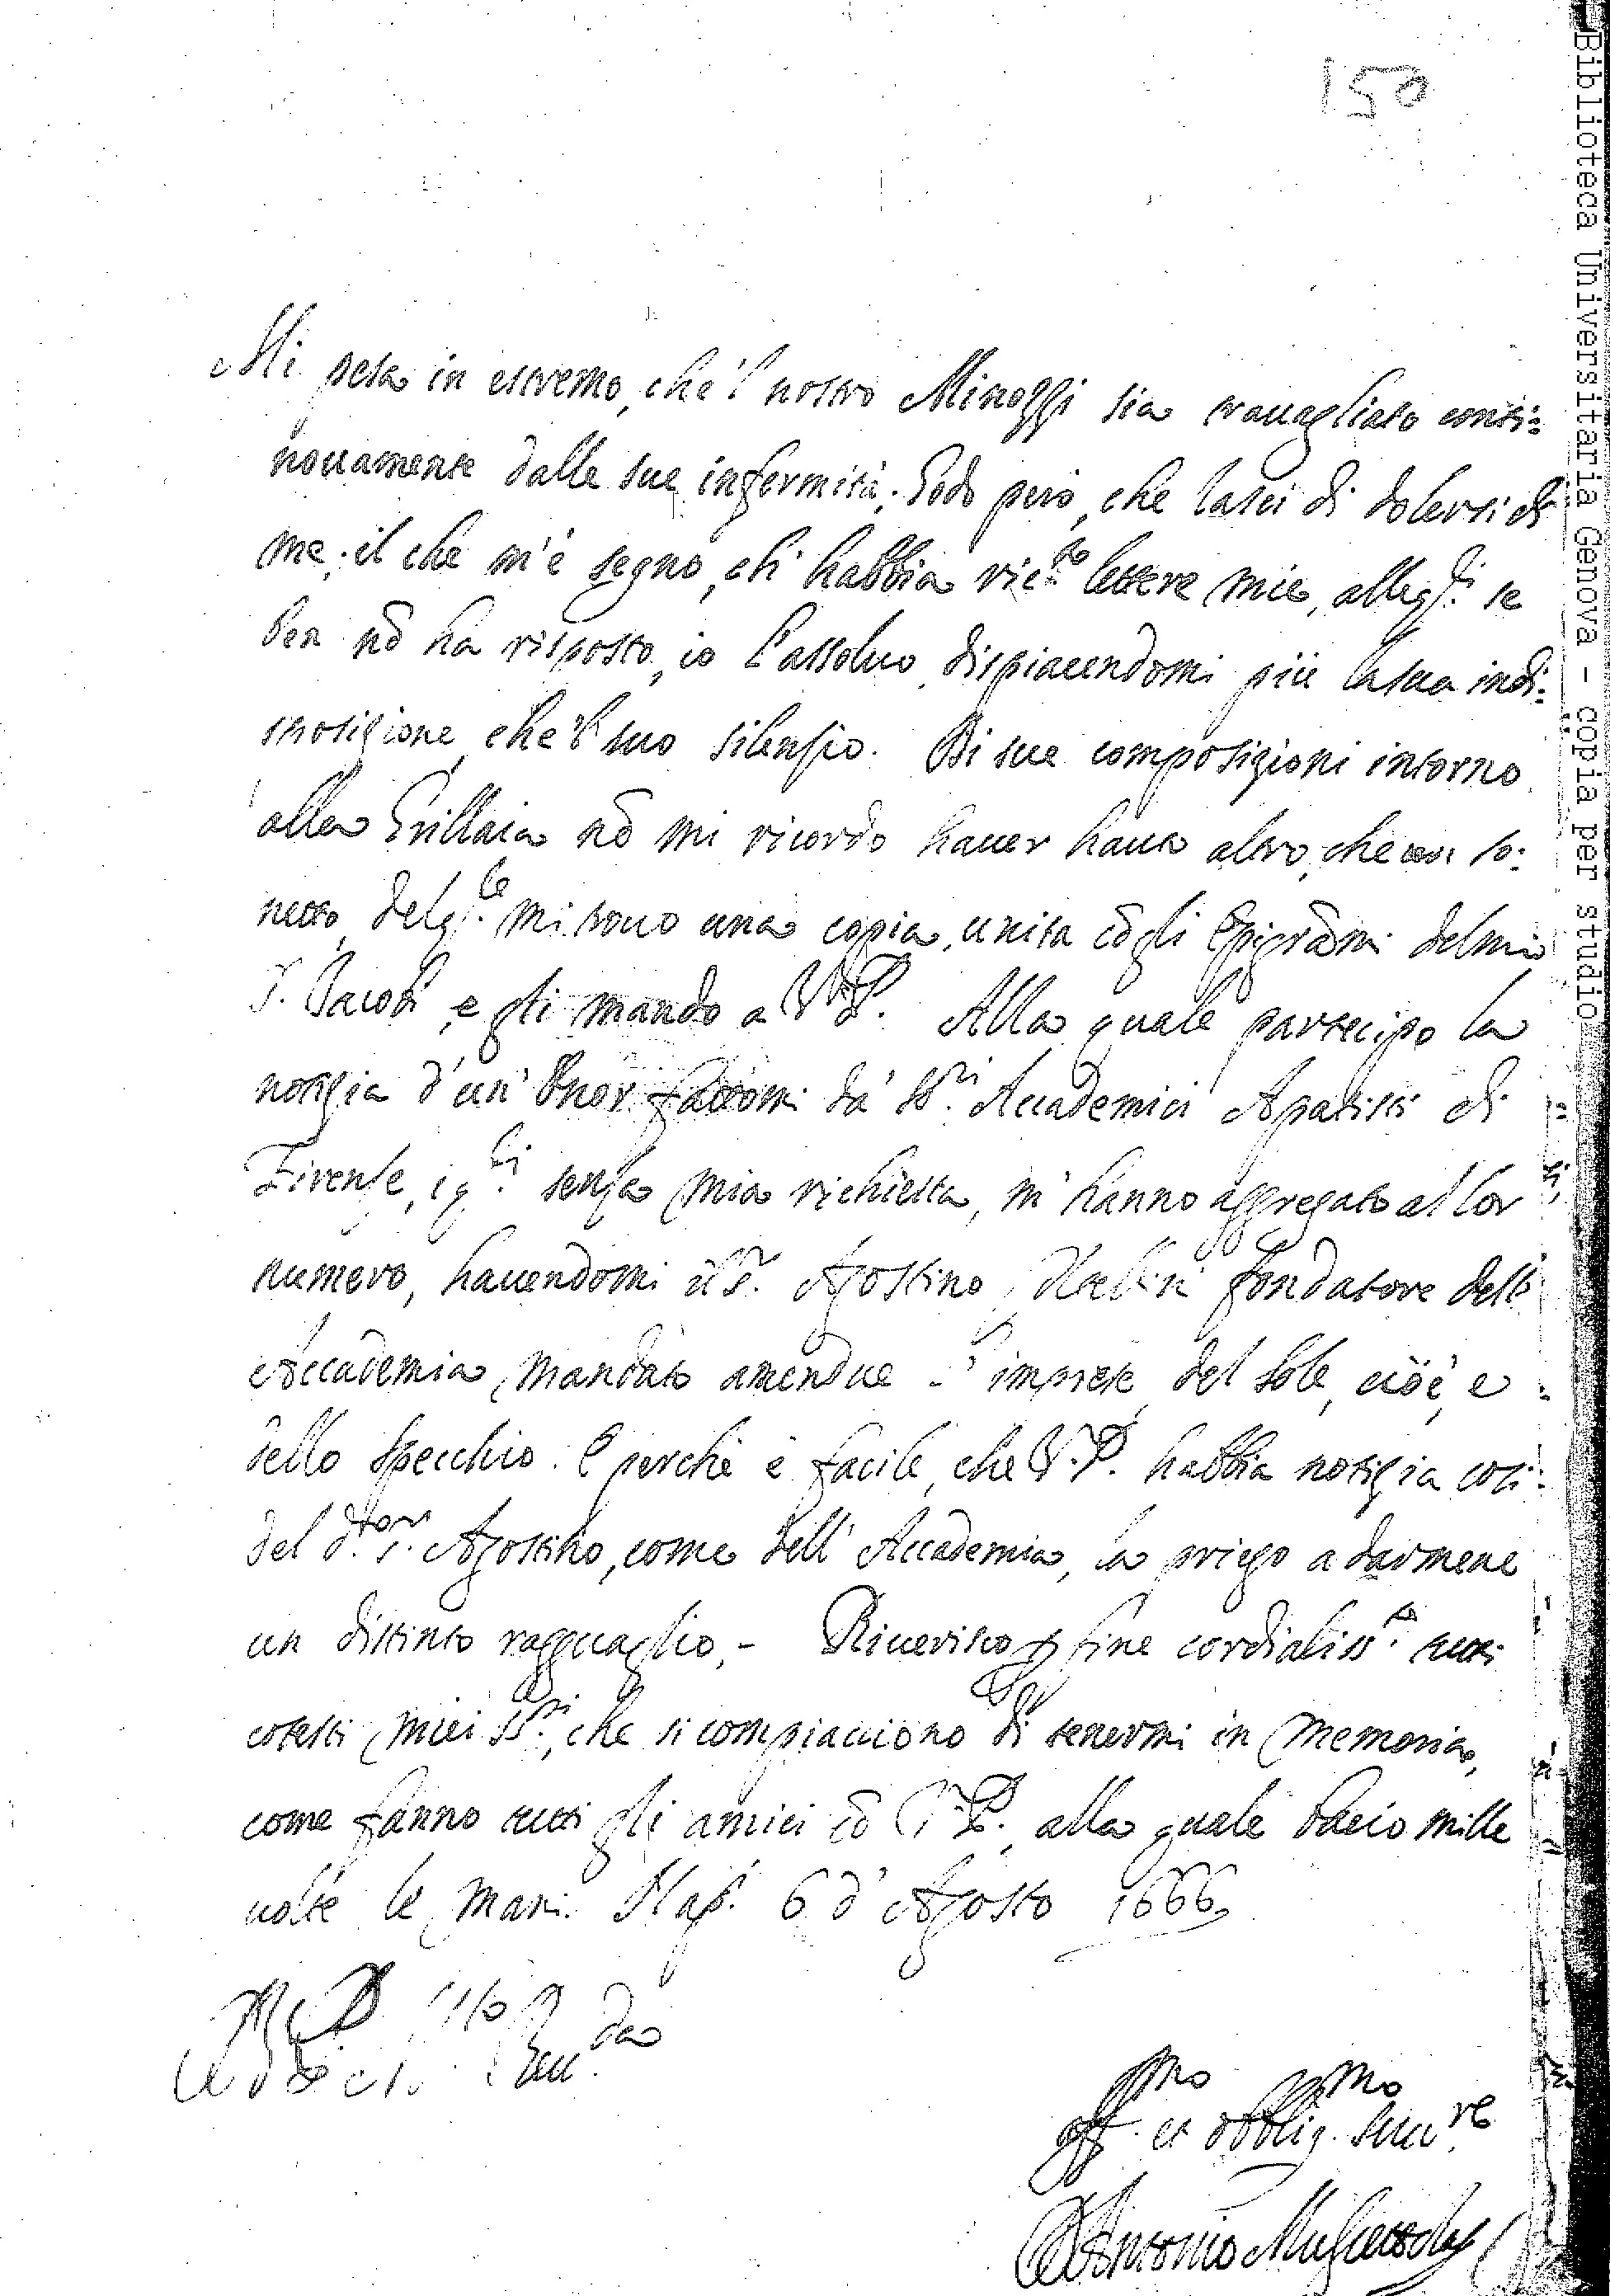 150
Mi pesa in estremo, che'l nostro Minozzi sia trauagliato conti=
nouamente dalle sue infermità; Godo però, che lasci di dolersi di
me; il che m'è segno, ch'habbia ric.to lettere mie, alle q.li se
ben nō ha risposto, io l'assoluo, dispiacendomi più la sua indi=
sposizione, che'l suo silenzio. Di sue composizioni intorno
alla Grillaia nō mi ricordo hauer hauuto altro, che un so=
netto, del q.le mi trouo una copia, unita cō gli Epigrāmi del mio
S. Iacobi, e gli mando a V. P. Alla quale partecipo la
notizia d'un' Onor fattomi da' SS.ri Accademici Apatisti di
Firenze, i q.li senza mia richiesta, m'hanno aggregato al lor
numero, hauendomi il S.r Agostino fondatore dell'
Accademia, mandato amendue l'imprese, del Sole, cioè, e
dello Specchio. E perche è facile, che V. P. habbia notizia così
del d.to S.r Agostino, come dell'Accademia, la priego a darmene
un distinto ragguaglio. - Riuerisco p fine cordialiss.te tutti
cotesti miei SS.ri, che si compiacciono di tenermi in memoria,
come fanno tutti gli amici cō V. P., alla quale bacio mille
uolte le mani. Nap. 6 d'Agosto 1666
Aff.mo et obblig.mo Seru.re
Antonio Muscettola
Biblioteca Universitaria Genova - copia per studio